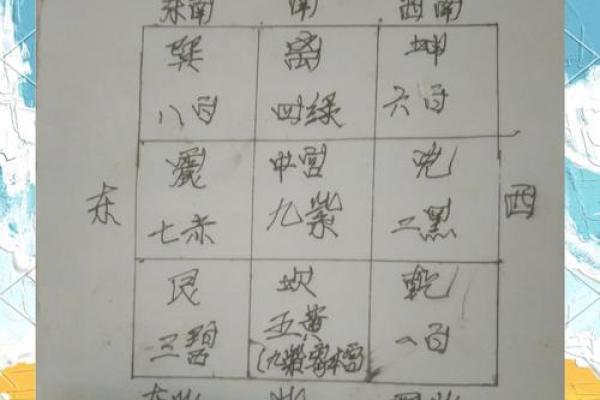 东南 南 西南
巽 离 坤
八白 四绿 六白
震 中宫 兑
东 七赤 九紫 二黑 西
艮 坎 乾
三碧 五黄 一白
(九紫 本宫)